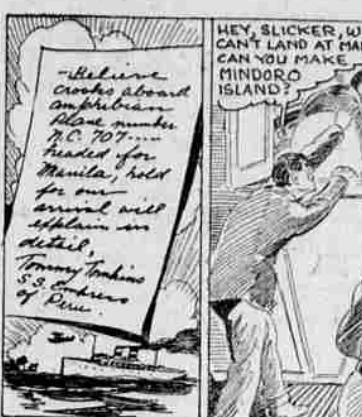 -Believe
crooks aboard
amphibian
plane number
N.C. 707.....
headed for
Manila, hold
for our
arrival will
explain in
detail,
Tommy Tomkins
S.S. Empress
of Peru.
HEY, SLICKER, W
CAN'T LAND AT MA
CAN YOU MAKE
MINDORO
ISLAND?